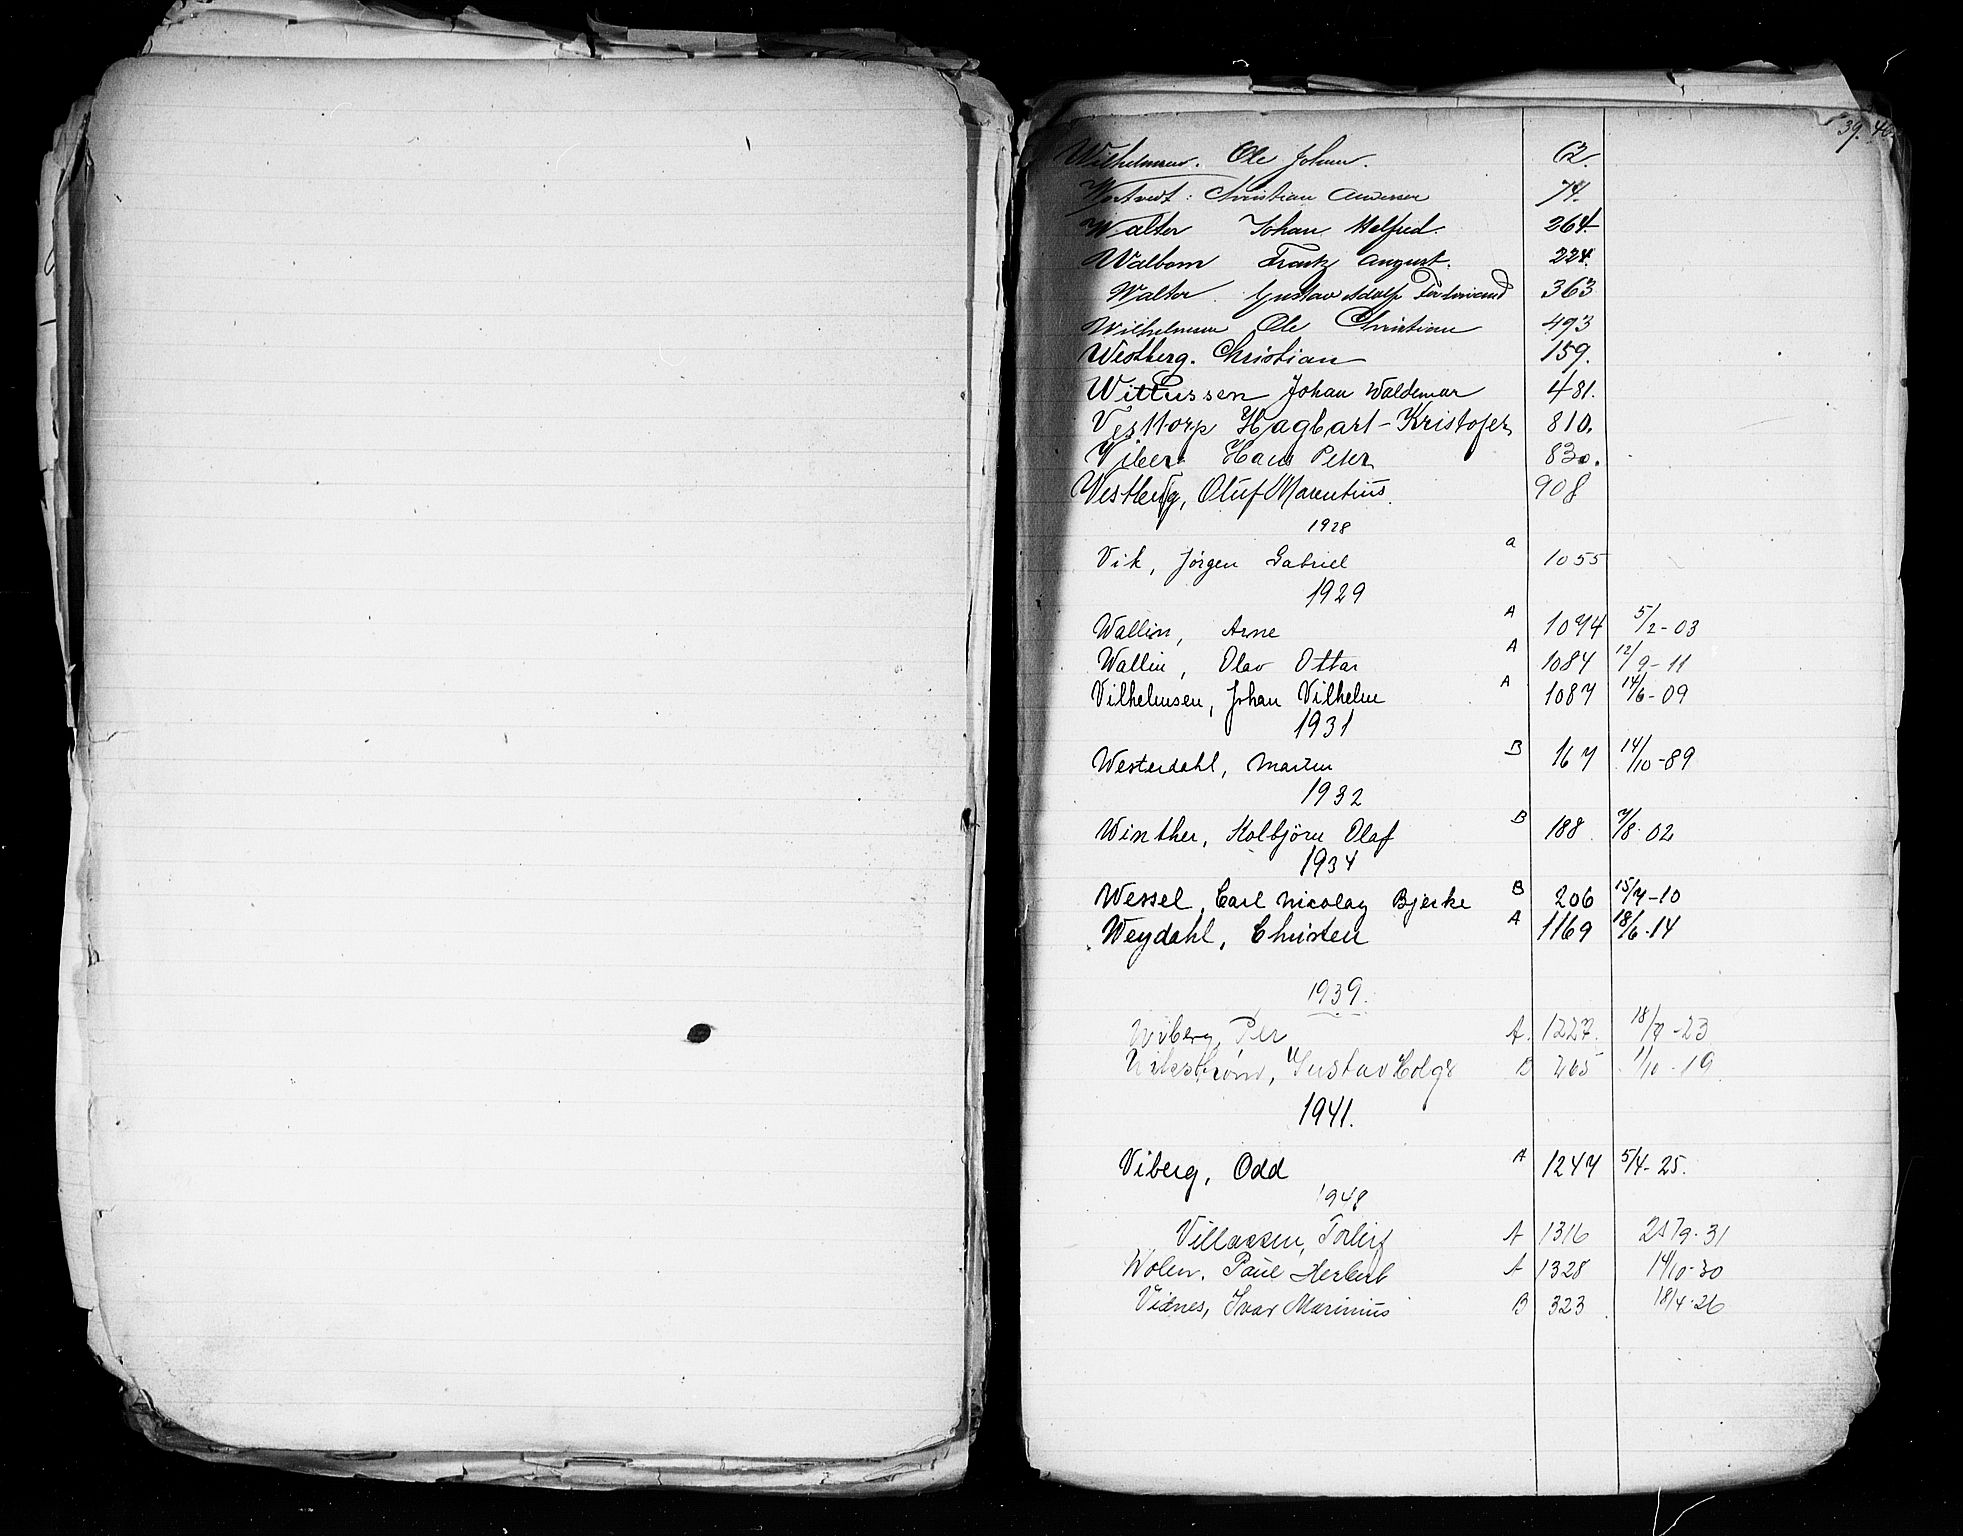 39. 40.
Wilhelmsen. Ole Johan. 2.
Christian Andersen 74.
Walter Johan Helfred. 264.
Walbom Frantz August. 224.
Walter Gustav Adolf Ferdinand 363
Wilhelmsen Ole Christian 493
Westberg. Christian 159.
Wittussen Johan Waldemar 481.
Vesttorp Hagbart-Kristofer 810.
Viberg Hans Peter 830.
Vestberg, Oluf Marentius. 908
1928
Vik, Jørgen Gabriel a 1055
1929
Wallin, Arne A 1074 5/2-03
Wallin, Olav Ottar A 1084 12/9-11
Vilhelmsen, Johan Vilhelm A 1087 14/6-09
1931
Westerdahl, Martin B 167 14/10-89
1932
Winther, Kolbjörn Olaf B 188 7/8-02
1934
Wessel, Carl Nicolay Bjerke B 206 15/7-10
Weydahl, Christen A 1169 18/6-14
1939.
Wiberg, Per A. 1227. 18/9-23
Gustav Holgr B 265 1/10-19
1941.
Viberg, Odd A 1247 5/4-25.
1948
Villassen, Torleif A 1316 9-31
Wolen, Paul Herbert A 1328 14/10-30
Vidnes, Ivar Marinius B 323 18/4-26